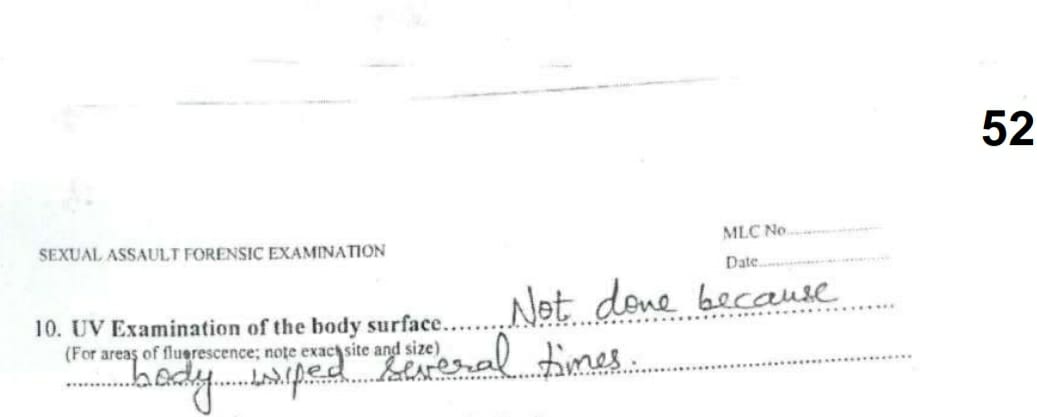 52
SEXUAL ASSAULT FORENSIC EXAMINATION
MLC No....................
Date....................
10. UV Examination of the body surface........Not done because........
(For areas of fluorescence; note exact site and size)
............body......wiped......several......times....................